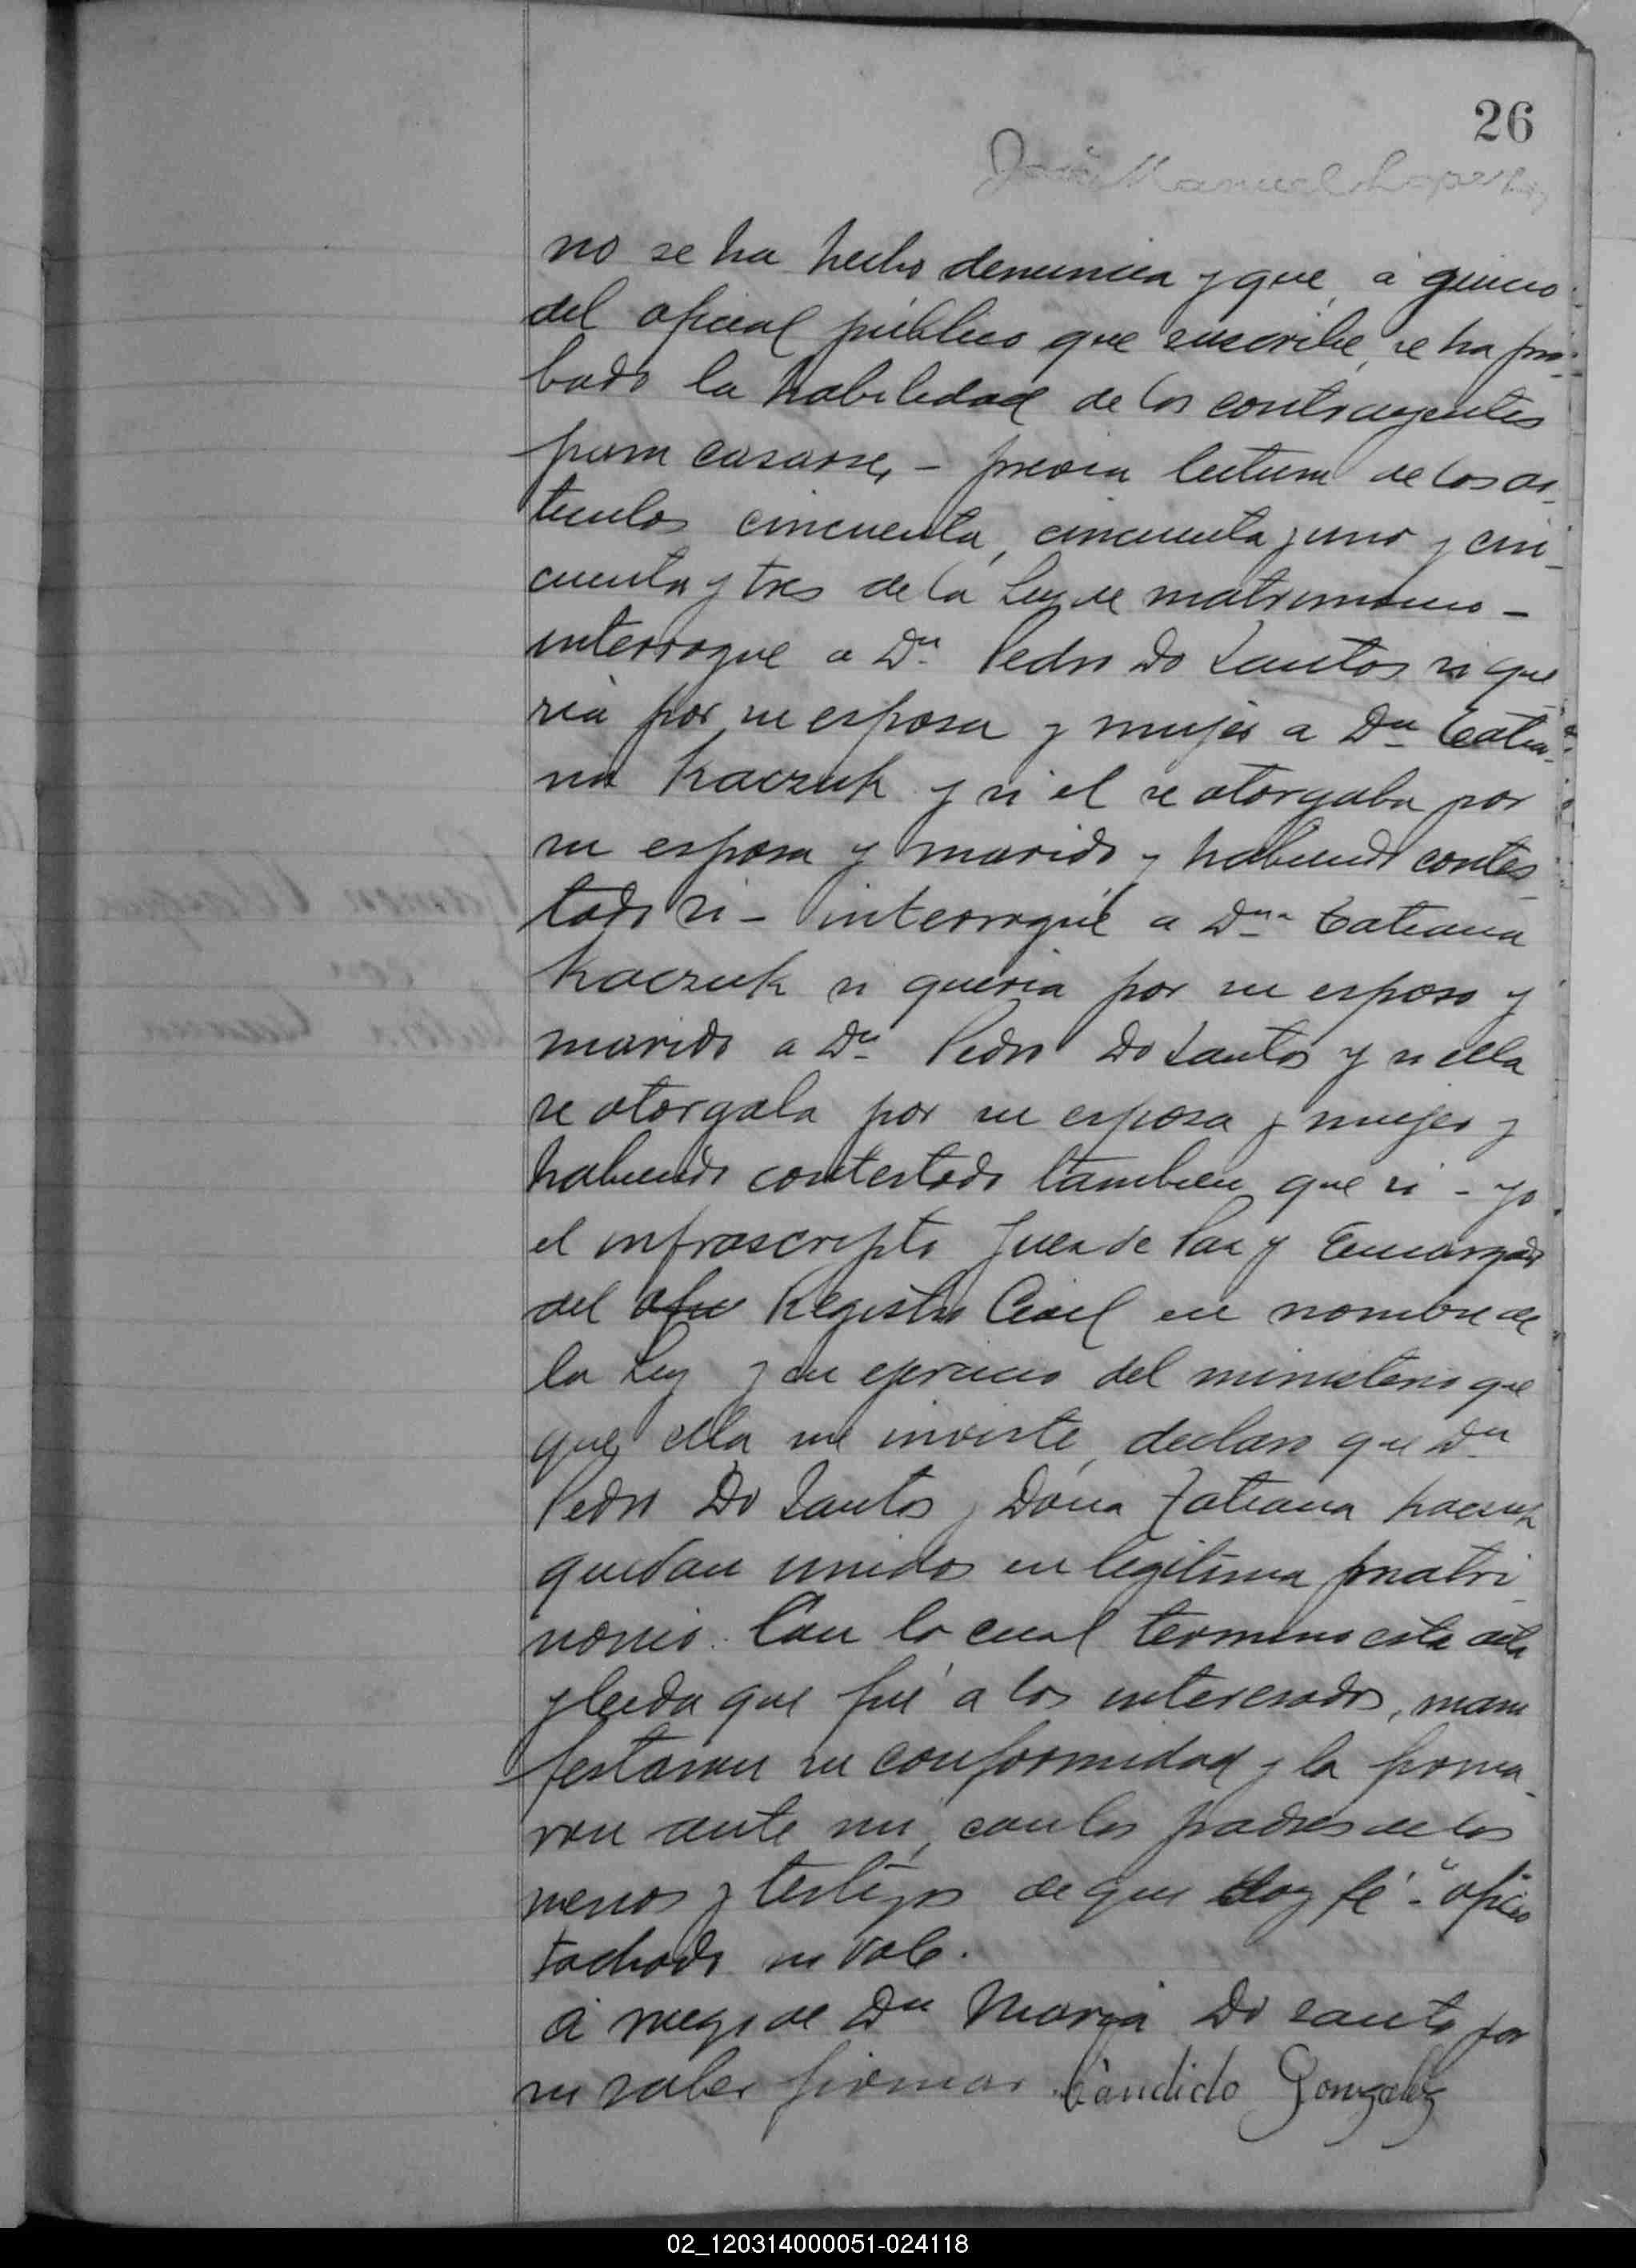 26
José Manuel Lopez
no se ha hecho denuncia y que, á juicio
del oficial público que suscribe, se ha pro-
bado la habilidad de los contrayentes
para casarse, - previa lectura de los ar-
ticulos cincuenta, cincuenta y uno y cin-
cuenta y tres de la Ley de matrimonio -
interrogue a Dn Pedro Do Santos si que
ria por su esposa y mujer a Dña Tatia-
na Kaczuk y si el se otorgaba por
su esposo y marido y habiendo contes-
tado si - interrogué a Dña Tatiana
Kaczuk si queria por su esposo y
marido a Dn Pedro Do Santos y si ella
se otorgaba por su esposa y mujer y
habiendo contestado tambien que si - yo
el infrascripto Juez de Paz y Encargado
del ofic Registro Civil en nombre de
la Ley y en ejercicio del ministerio que
que ella me inviste, declaro que Dn
Pedro Do Santos y Doña Tatiana Kaczuk
quedan unidos en legitimo matri-
monio. Con lo cual termino esta acta
y leida que fué a los interesados, mani
festaron su conformidad y la firma-
ron ante mi, con los padres de los
menos y testigos de que doy fé - "oficio
tachado no vale.
á ruego de Dña Maria Do Santo por
no saber firmar Cándido Gonzalez
02_120314000051-024118